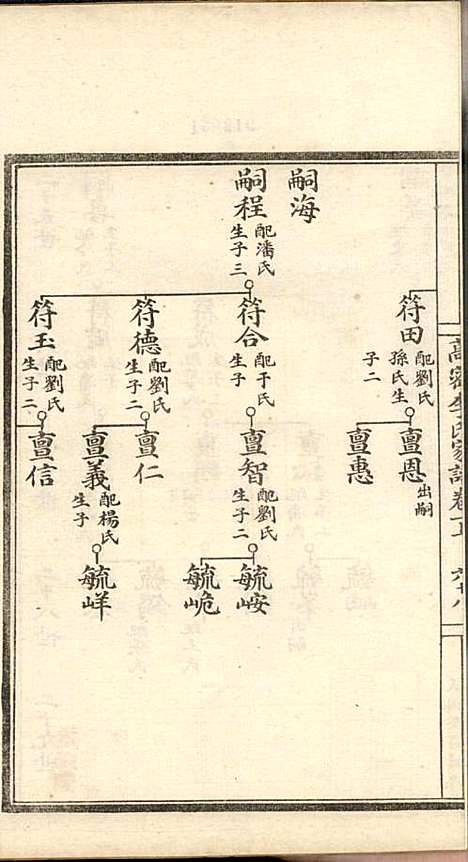 高密李氏家譜卷
六十八
符田
配劉氏
孫氏生
子二
亶恩
出嗣
亶惠
嗣海
嗣程
配潘氏
生子三
符合
配于氏
生子
亶智
配劉氏
生子二
毓峖
毓峗
符德
配劉氏
生子二
亶仁
亶義
配楊氏
生子
毓岶
符玉
配劉氏
生子二
亶信